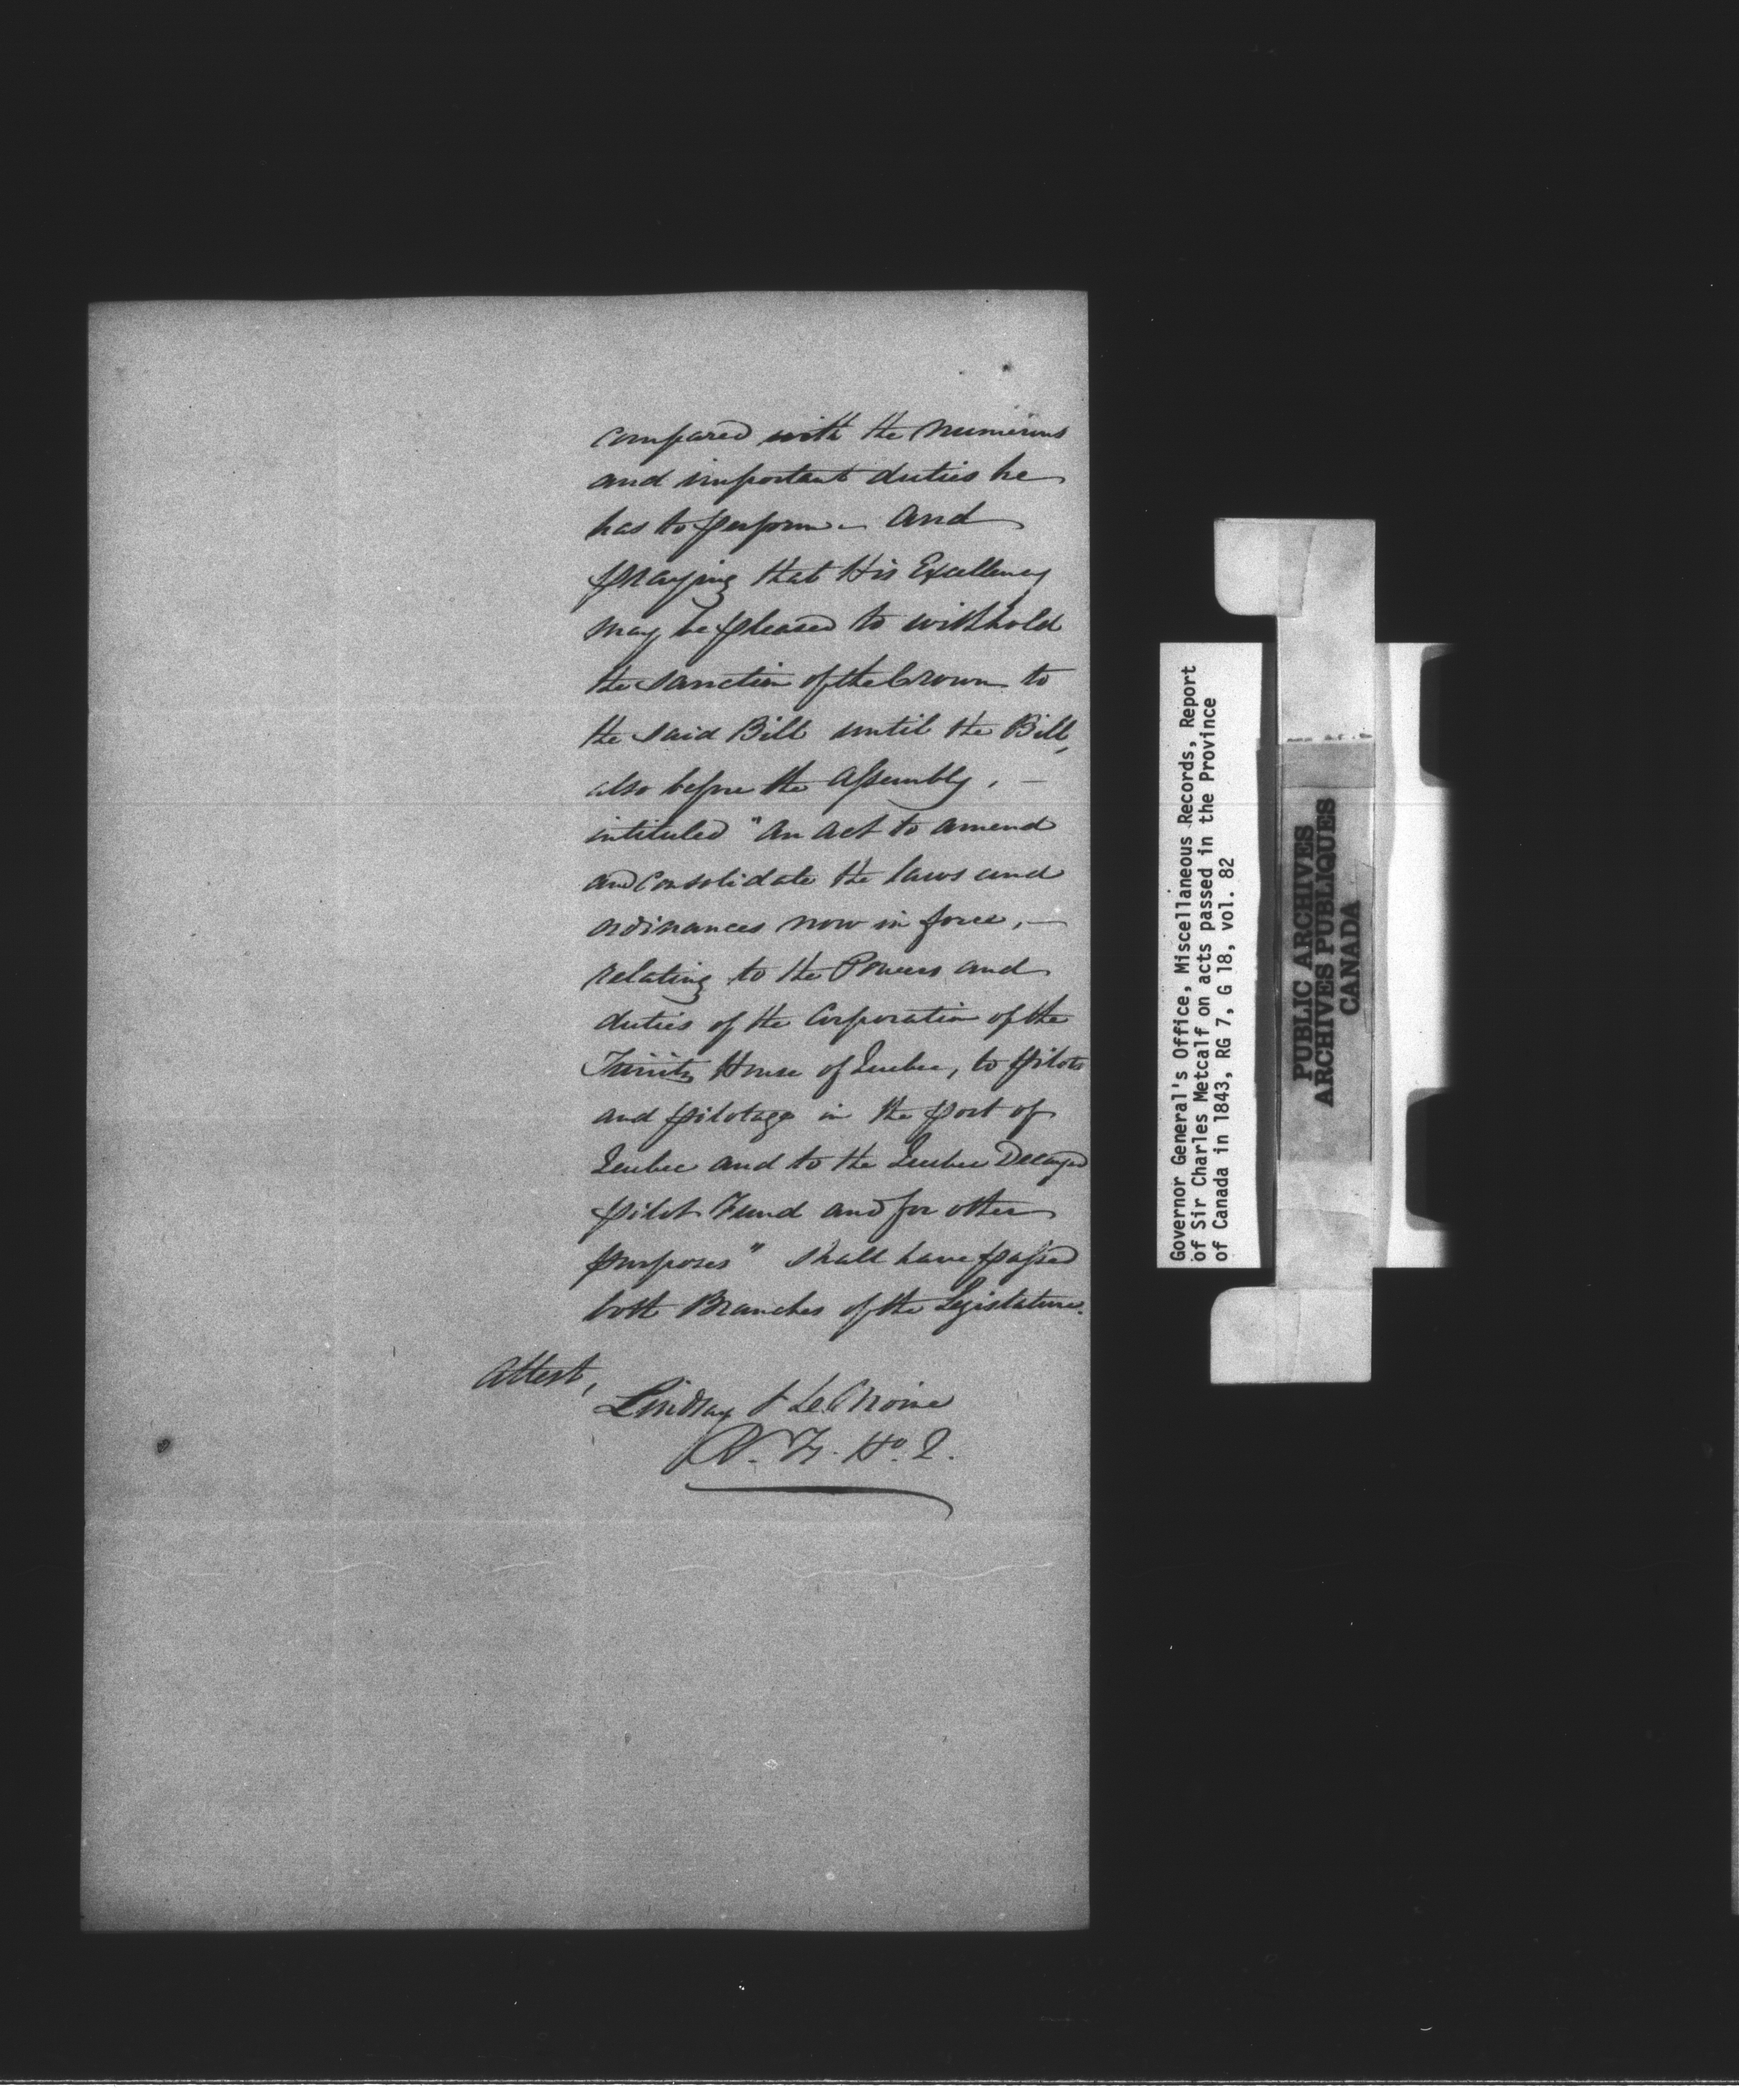 compared with the numerous
and important duties he
has to perform – And
praying that His Excellency
may be pleased to withhold
the sanction of the Crown to
the said Bill until the Bill,
also before the Assembly, –
intituled "An Act to amend
and consolidate the laws and
ordinances now in force, –
relating to the Powers and
duties of the Corporation of the
Trinity House of Quebec, to pilots
and pilotage in the port of
Quebec and to the Quebec Decayed
pilot Fund and for other
purposes" shall have passed
both Branches of the Legislature.
Attest,
Lindsay & LeMoine
Ho. Q.
Governor General's Office, Miscellaneous Records, Report
of Sir Charles Metcalf on acts passed in the Province
of Canada in 1843, RG 7, G 18, vol. 82
PUBLIC ARCHIVES
ARCHIVES PUBLIQUES
CANADA